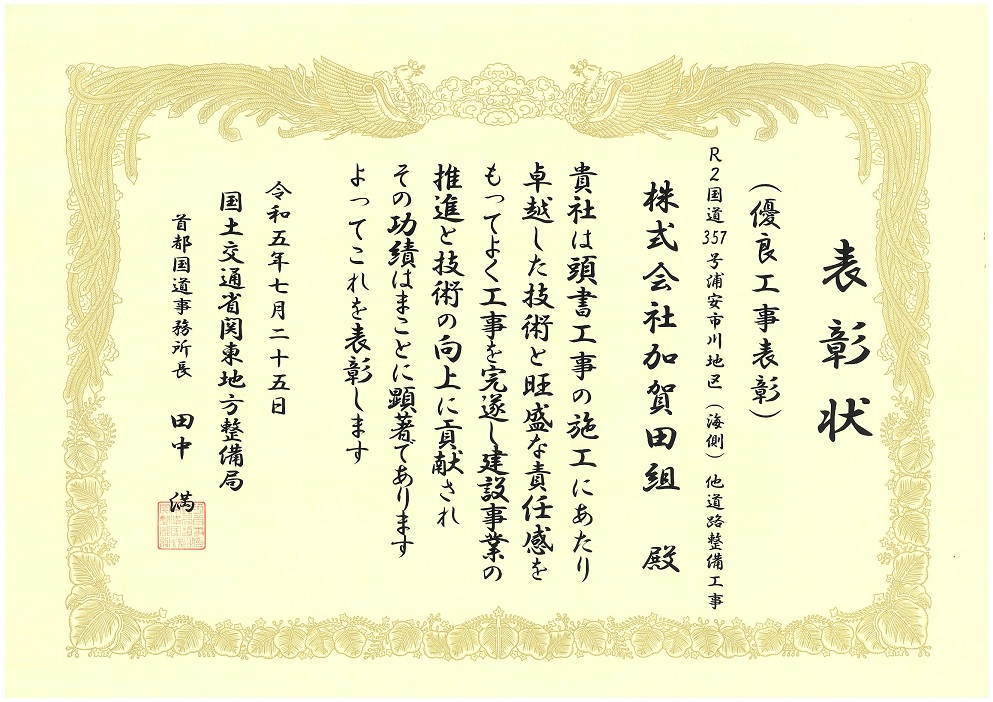 表彰状
（優良工事表彰）
R2国道357号浦安市川地区（海側）他道路整備工事
株式会社加賀田組 殿
貴社は頭書工事の施工にあたり
卓越した技術と旺盛な責任感を
もってよく工事を完遂し建設事業の
推進と技術の向上に貢献され
その功績はまことに顕著であります
よってこれを表彰します
令和五年七月二十五日
国土交通省関東地方整備局
首都国道事務所長 田中 満